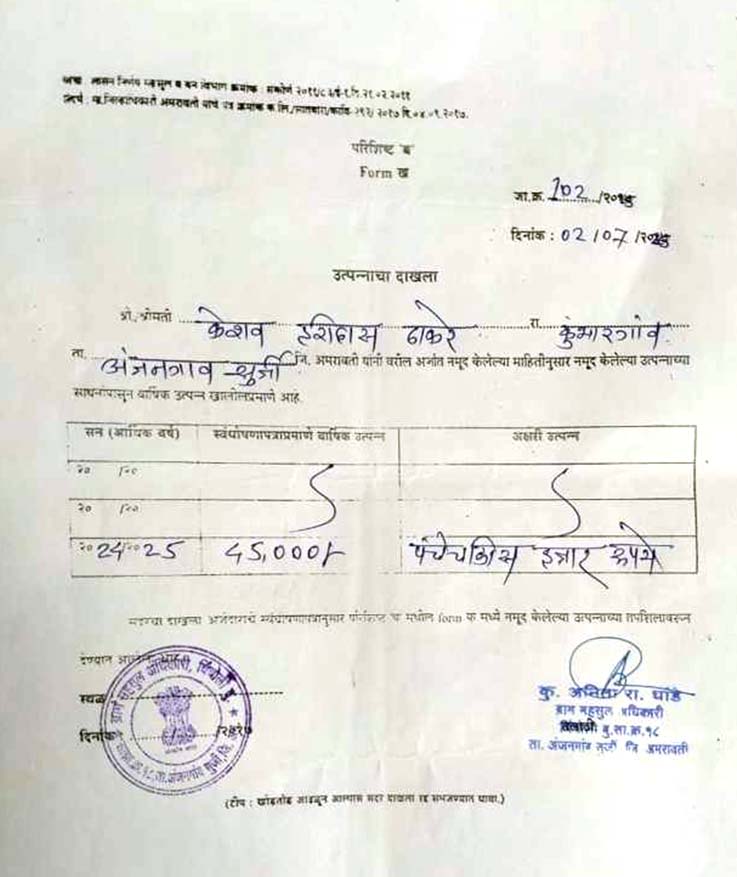 शासन निर्णय महसुल व वन विभाग क्रमांक : संकीर्ण २०११/८ दि.२१.०२.२०११
संदर्भ : मा.जिल्हाधिकारी अमरावती यांचे पत्र क्रमांक दि.०४.०९.२०१७.
परिशिष्ट "ब"
Form ख
जा.क्र. 102
दिनांक : 02/07
उत्पन्नाचा दाखला
श्री./श्रीमती केशव हरिदास ठाकरे रा. कुंभारगांव
ता. अंजनगाव सुर्जी जि. अमरावती यांनी वरील अर्जात नमूद केलेल्या माहितीनुसार नमूद केलेल्या उत्पन्नाच्या
साधनांपासुन वार्षिक उत्पन्न खालीलप्रमाणे आहे.
सन (आर्थिक वर्ष) स्वंघोषणापत्राप्रमाणे वार्षिक उत्पन्न अक्षरी उत्पन्न
२०
२०
२०24 25 45,000/- पंचेचाळीस हजार रुपये
सदरचा दाखला अर्जदाराचे स्वंघोषणापत्रानुसार मधील form क मध्ये नमूद केलेल्या उत्पन्नाच्या तपशिलावरुन
देण्यात
स्थळ
दिनांक
कु. रा. घोडे
ग्राम महसुल अधिकारी
बु.सा.क्र.१८
ता. अंजनगांव सुर्जी जि अमरावती
ग्राम महसुल अधिकारी, चिंचोली बु.
सा.क्र.१८.ता.अंजनगांव सुर्जी.जि.
(टीप : खोडतोड आढळून आल्यास सदर दाखला रद्द समजण्यात यावा.)